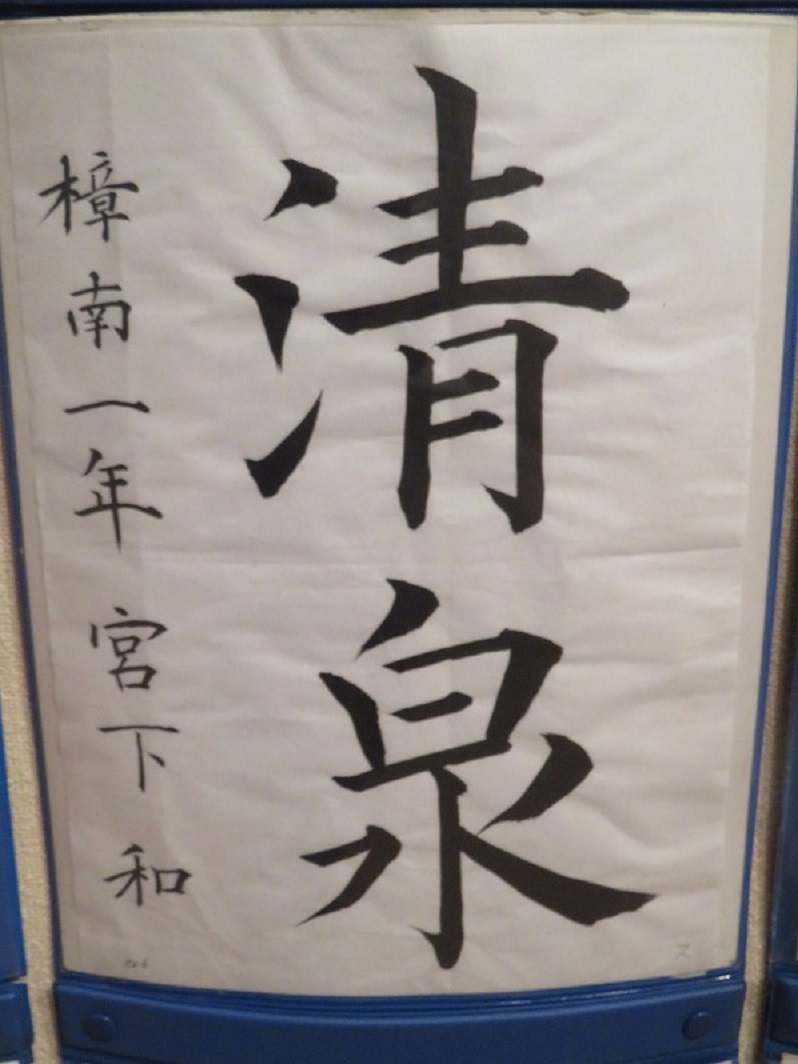 清泉
樟南一年 宮下 和